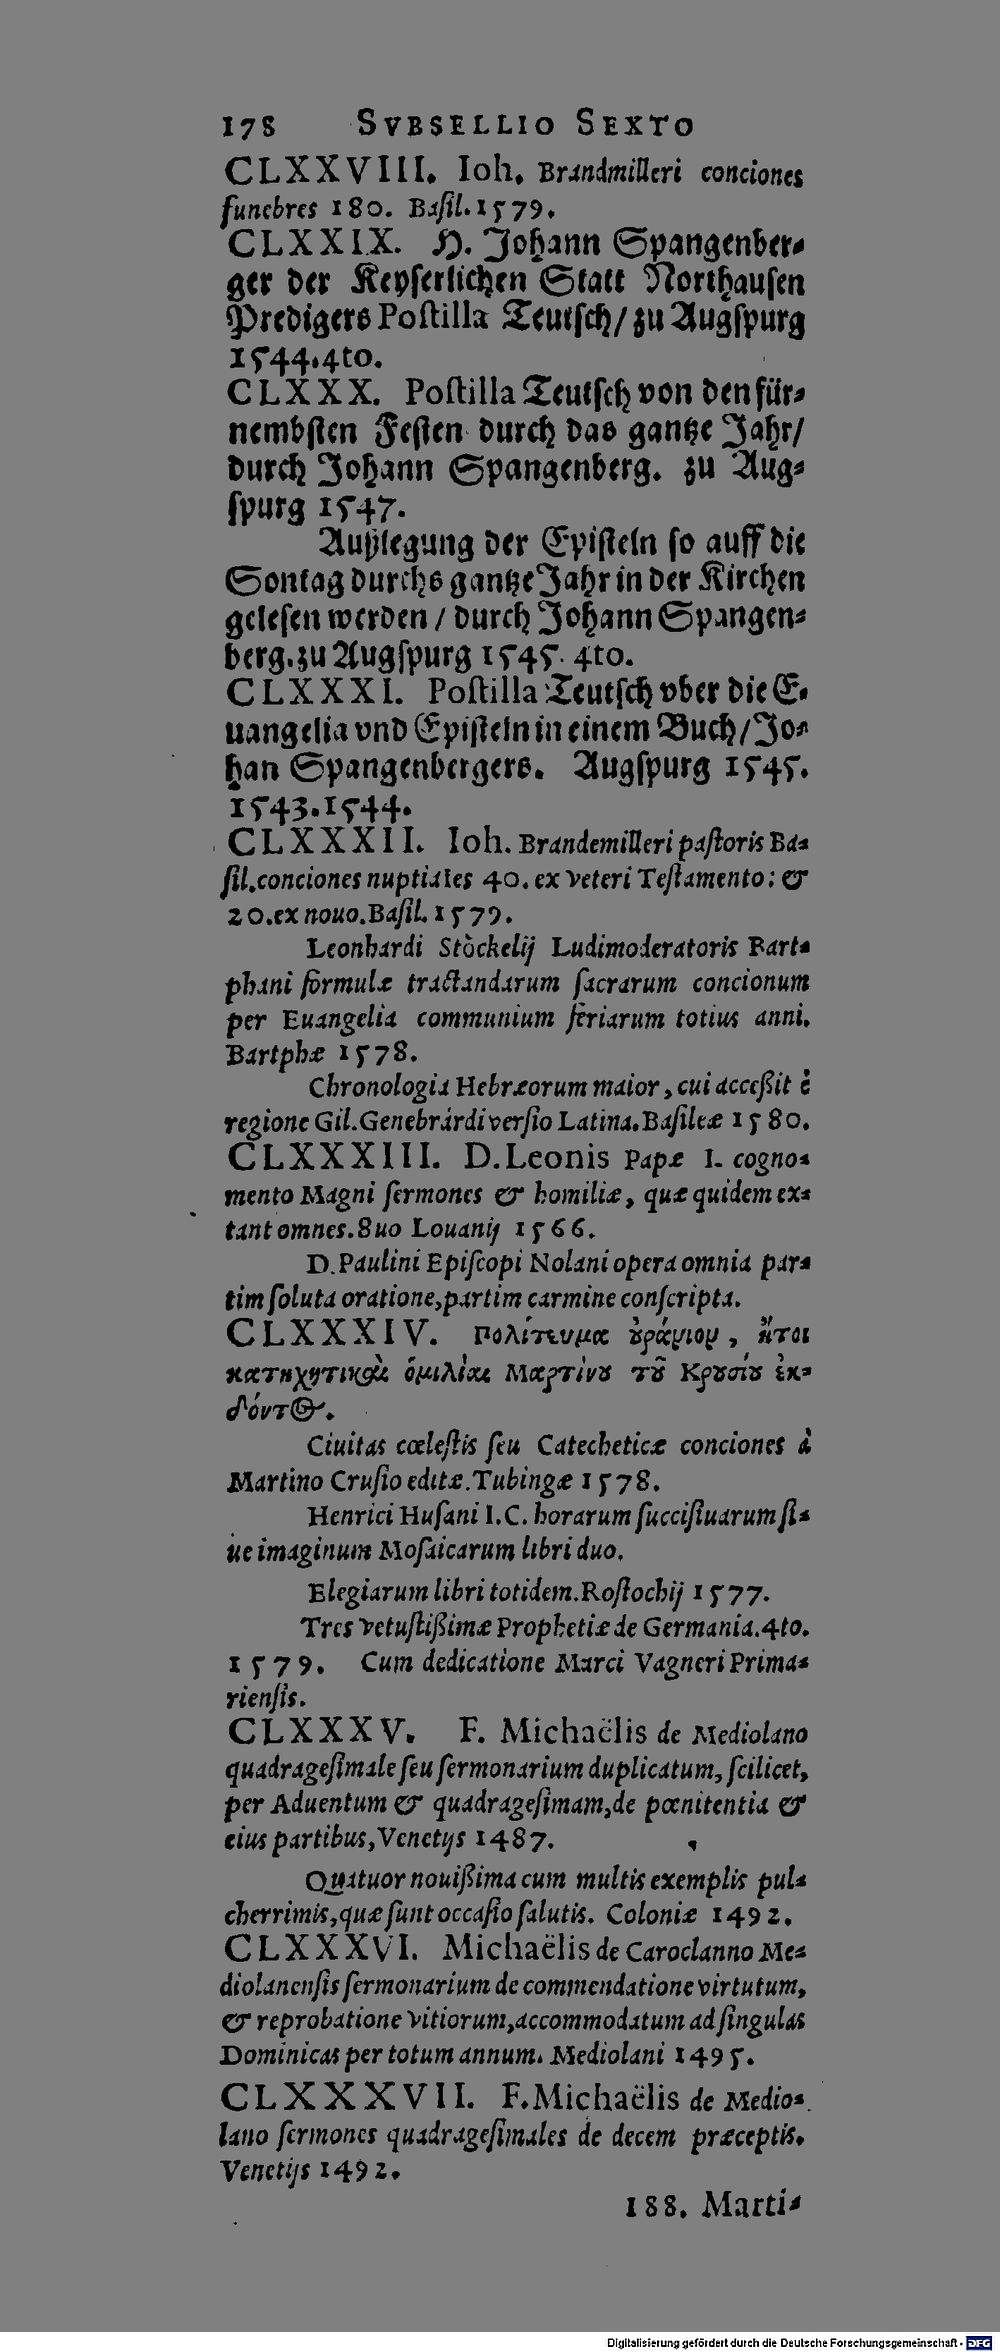 178 SVBSELLIO SEXTO
CLXXVIII. Ioh. Brandmilleri conciones
funebres 180. Baſil. 1579.
CLXXIX. H. Johann Spangenber⸗
ger der Keyſerlichen Statt Northauſen
Predigers Poſtilla Teutſch / zu Augſpurg
1544. 4to.
CLXXX. Poſtilla Teutſch von den für⸗
nembſten Feſten durch das gantze Jahr /
durch Johann Spangenberg. zu Aug⸗
ſpurg 1547.
Außlegung der Epiſteln ſo auff die
Sontag durchs gantze Jahr in der Kirchen
geleſen werden / durch Johann Spangen⸗
berg. zu Augſpurg 1545. 4to.
CLXXXI. Poſtilla Teutſch vber die E⸗
uangelia vnd Epiſteln in einem Buch / Jo⸗
han Spangenbergers. Augſpurg 1545.
1543. 1544.
CLXXXII. Ioh. Brandemilleri paſtoris Ba⸗
ſil. conciones nuptiales 40. ex veteri Teſtamento: &
20. ex nouo. Baſil. 1579.
Leonhardi Stòckelij Ludimoderatoris Bart⸗
phani formulæ tractandarum ſacrarum concionum
per Euangelia communium feriarum totius anni.
Bartphæ 1578.
Chronologia Hebræorum maior, cui acceßit è
regione Gil. Genebrárdi verſio Latina. Baſileæ 1580.
CLXXXIII. D. Leonis Papæ I. cogno⸗
mento Magni ſermones & homiliæ, quæ quidem ex⸗
tant omnes. 8uo Louanij 1566.
D. Paulini Epiſcopi Nolani opera omnia par⸗
tim ſoluta oratione, partim carmine conſcripta.
CLXXXIV. Πολίτευμα ȣράνιον, ἤτοι
κατηχητικαὶ ὁμιλίαι Μαρτίνȣ τȣ͂ Κρȣσίȣ ἐκ⸗
δόντ⊙.
Ciuitas cœleſtis ſeu Catecheticæ conciones à
Martino Cruſio editæ. Tubingæ 1578.
Henrici Huſani I. C. horarum ſucciſiuarum ſi⸗
ue imaginum Moſaicarum libri duo.
Elegiarum libri totidem. Roſtochij 1577.
Tres vetuſtißimæ Prophetiæ de Germania. 4to.
1579. Cum dedicatione Marci Vagneri Prima⸗
rienſis.
CLXXXV. F. Michaëlis de Mediolano
quadrageſimale ſeu ſermonarium duplicatum, ſcilicet,
per Aduentum & quadrageſimam, de pœnitentia &
eius partibus, Venetijs 1487.
Quatuor nouißima cum multis exemplis pul⸗
cherrimis, quæ ſunt occaſio ſalutis. Coloniæ 1492.
CLXXXVI. Michaëlis de Caroclanno Me⸗
diolanenſis ſermonarium de commendatione virtutum,
& reprobatione vitiorum, accommodatum ad ſingulas
Dominicas per totum annum. Mediolani 1495.
CLXXXVII. F. Michaëlis de Medio⸗
lano ſermones quadrageſimales de decem præceptis.
Venetijs 1492.
188. Marti⸗
Digitalisierung gefördert durch die Deutsche Forschungsgemeinschaft - DFG